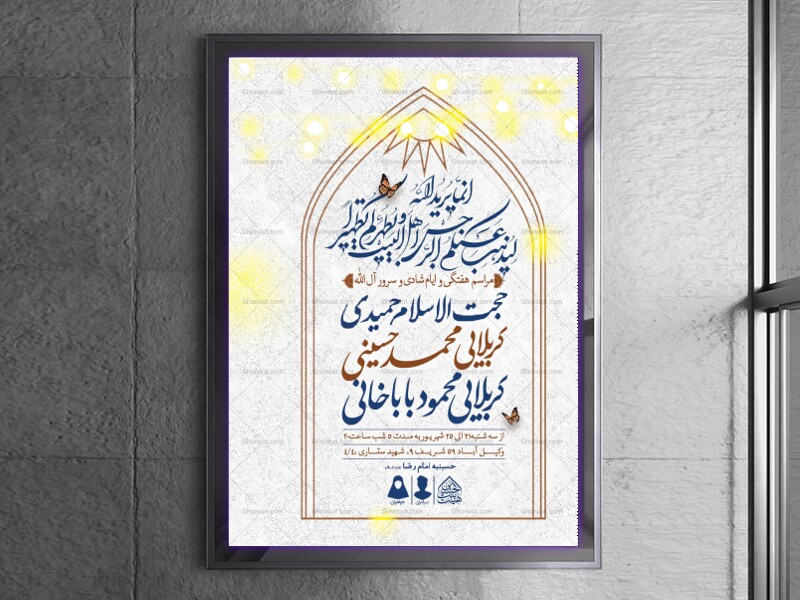 انما یرید الله
لیذهب عنکم الرجس اهل البیت و یطهرکم تطهیرا
مراسم هفتگی و ایام شادی و سرور آل الله
حجت الاسلام حمیدی
کربلایی محمد حسینی
کربلایی محمود باباخانی
از سه شنبه ۲۱ الی ۲۵ شهریور به مدت ۵ شب ساعت ۲۰
وکیل آباد ۵۹ شریف ۹، شهید ستاری ۴/۴۰
حسینیه امام رضا
برادران
خواهران
Ghonoot.com